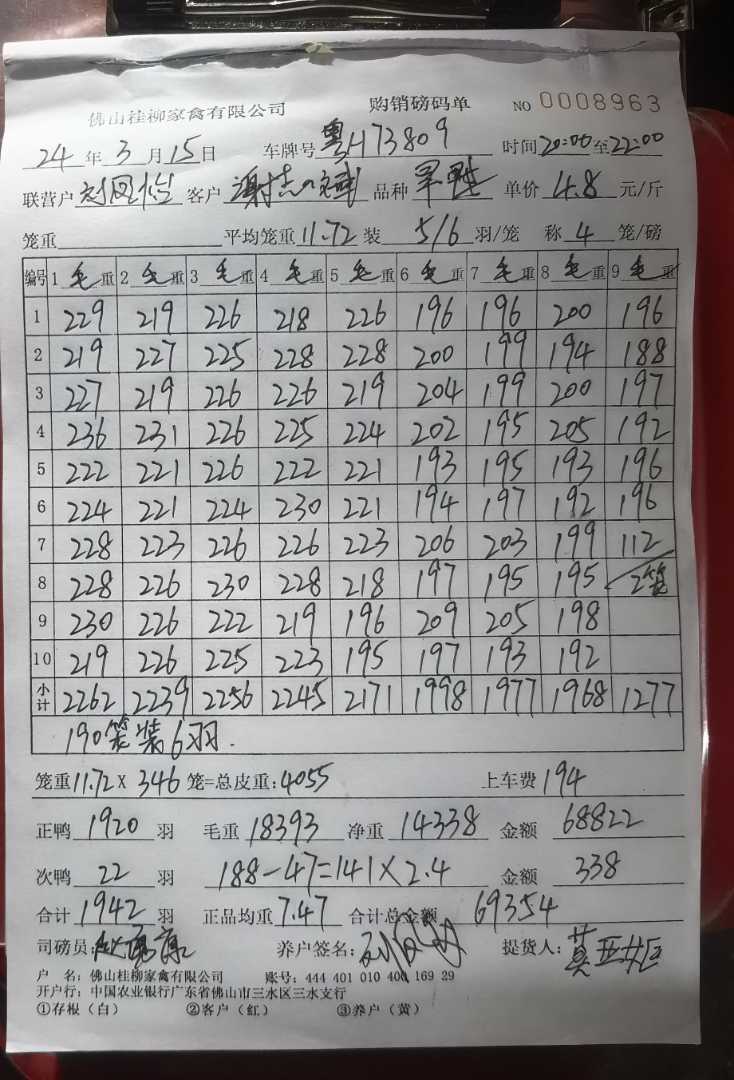 佛山桂柳家禽有限公司 购销磅码单 NO 0008963
24 年 3 月 15 日 车牌号 粤H73809 时间 20:00 至 22:00
联营户 客户 品种 单价 4.8 元/斤
笼重 平均笼重 11.72 装 5/6 羽/笼 称 4 笼/磅
编号 1 毛重 2 毛重 3 毛重 4 毛重 5 毛重 6 毛重 7 毛重 8 毛重 9 毛重
1 229 219 226 218 226 196 196 200 196
2 219 227 225 228 228 200 199 194 188
3 227 219 226 226 219 204 199 200 197
4 236 231 226 225 224 202 195 205 192
5 222 221 226 222 221 193 195 193 196
6 224 221 224 230 221 194 197 192 196
7 228 223 226 226 223 206 203 199 112
8 228 226 230 228 218 197 195 195 2笼
9 230 226 222 219 196 209 205 198
10 219 226 225 223 195 197 193 192
小计 2262 2239 2256 2245 2171 1998 1977 1968 1277
190笼装6羽.
笼重 11.72 X 346 笼=总皮重: 4055 上车费 194
正鸭 1920 羽 毛重 18393 净重 14338 金额 68822
次鸭 22 羽 188-47=141×2.4 金额 338
合计 1942 羽 正品均重 7.47 合计总金额 69354
司磅员: 养户签名: 提货人:
户 名: 佛山桂柳家禽有限公司 账号: 444 401 010 400 169 29
开户行: 中国农业银行广东省佛山市三水区三水支行
①存根（白） ②客户（红） ③养户（黄）